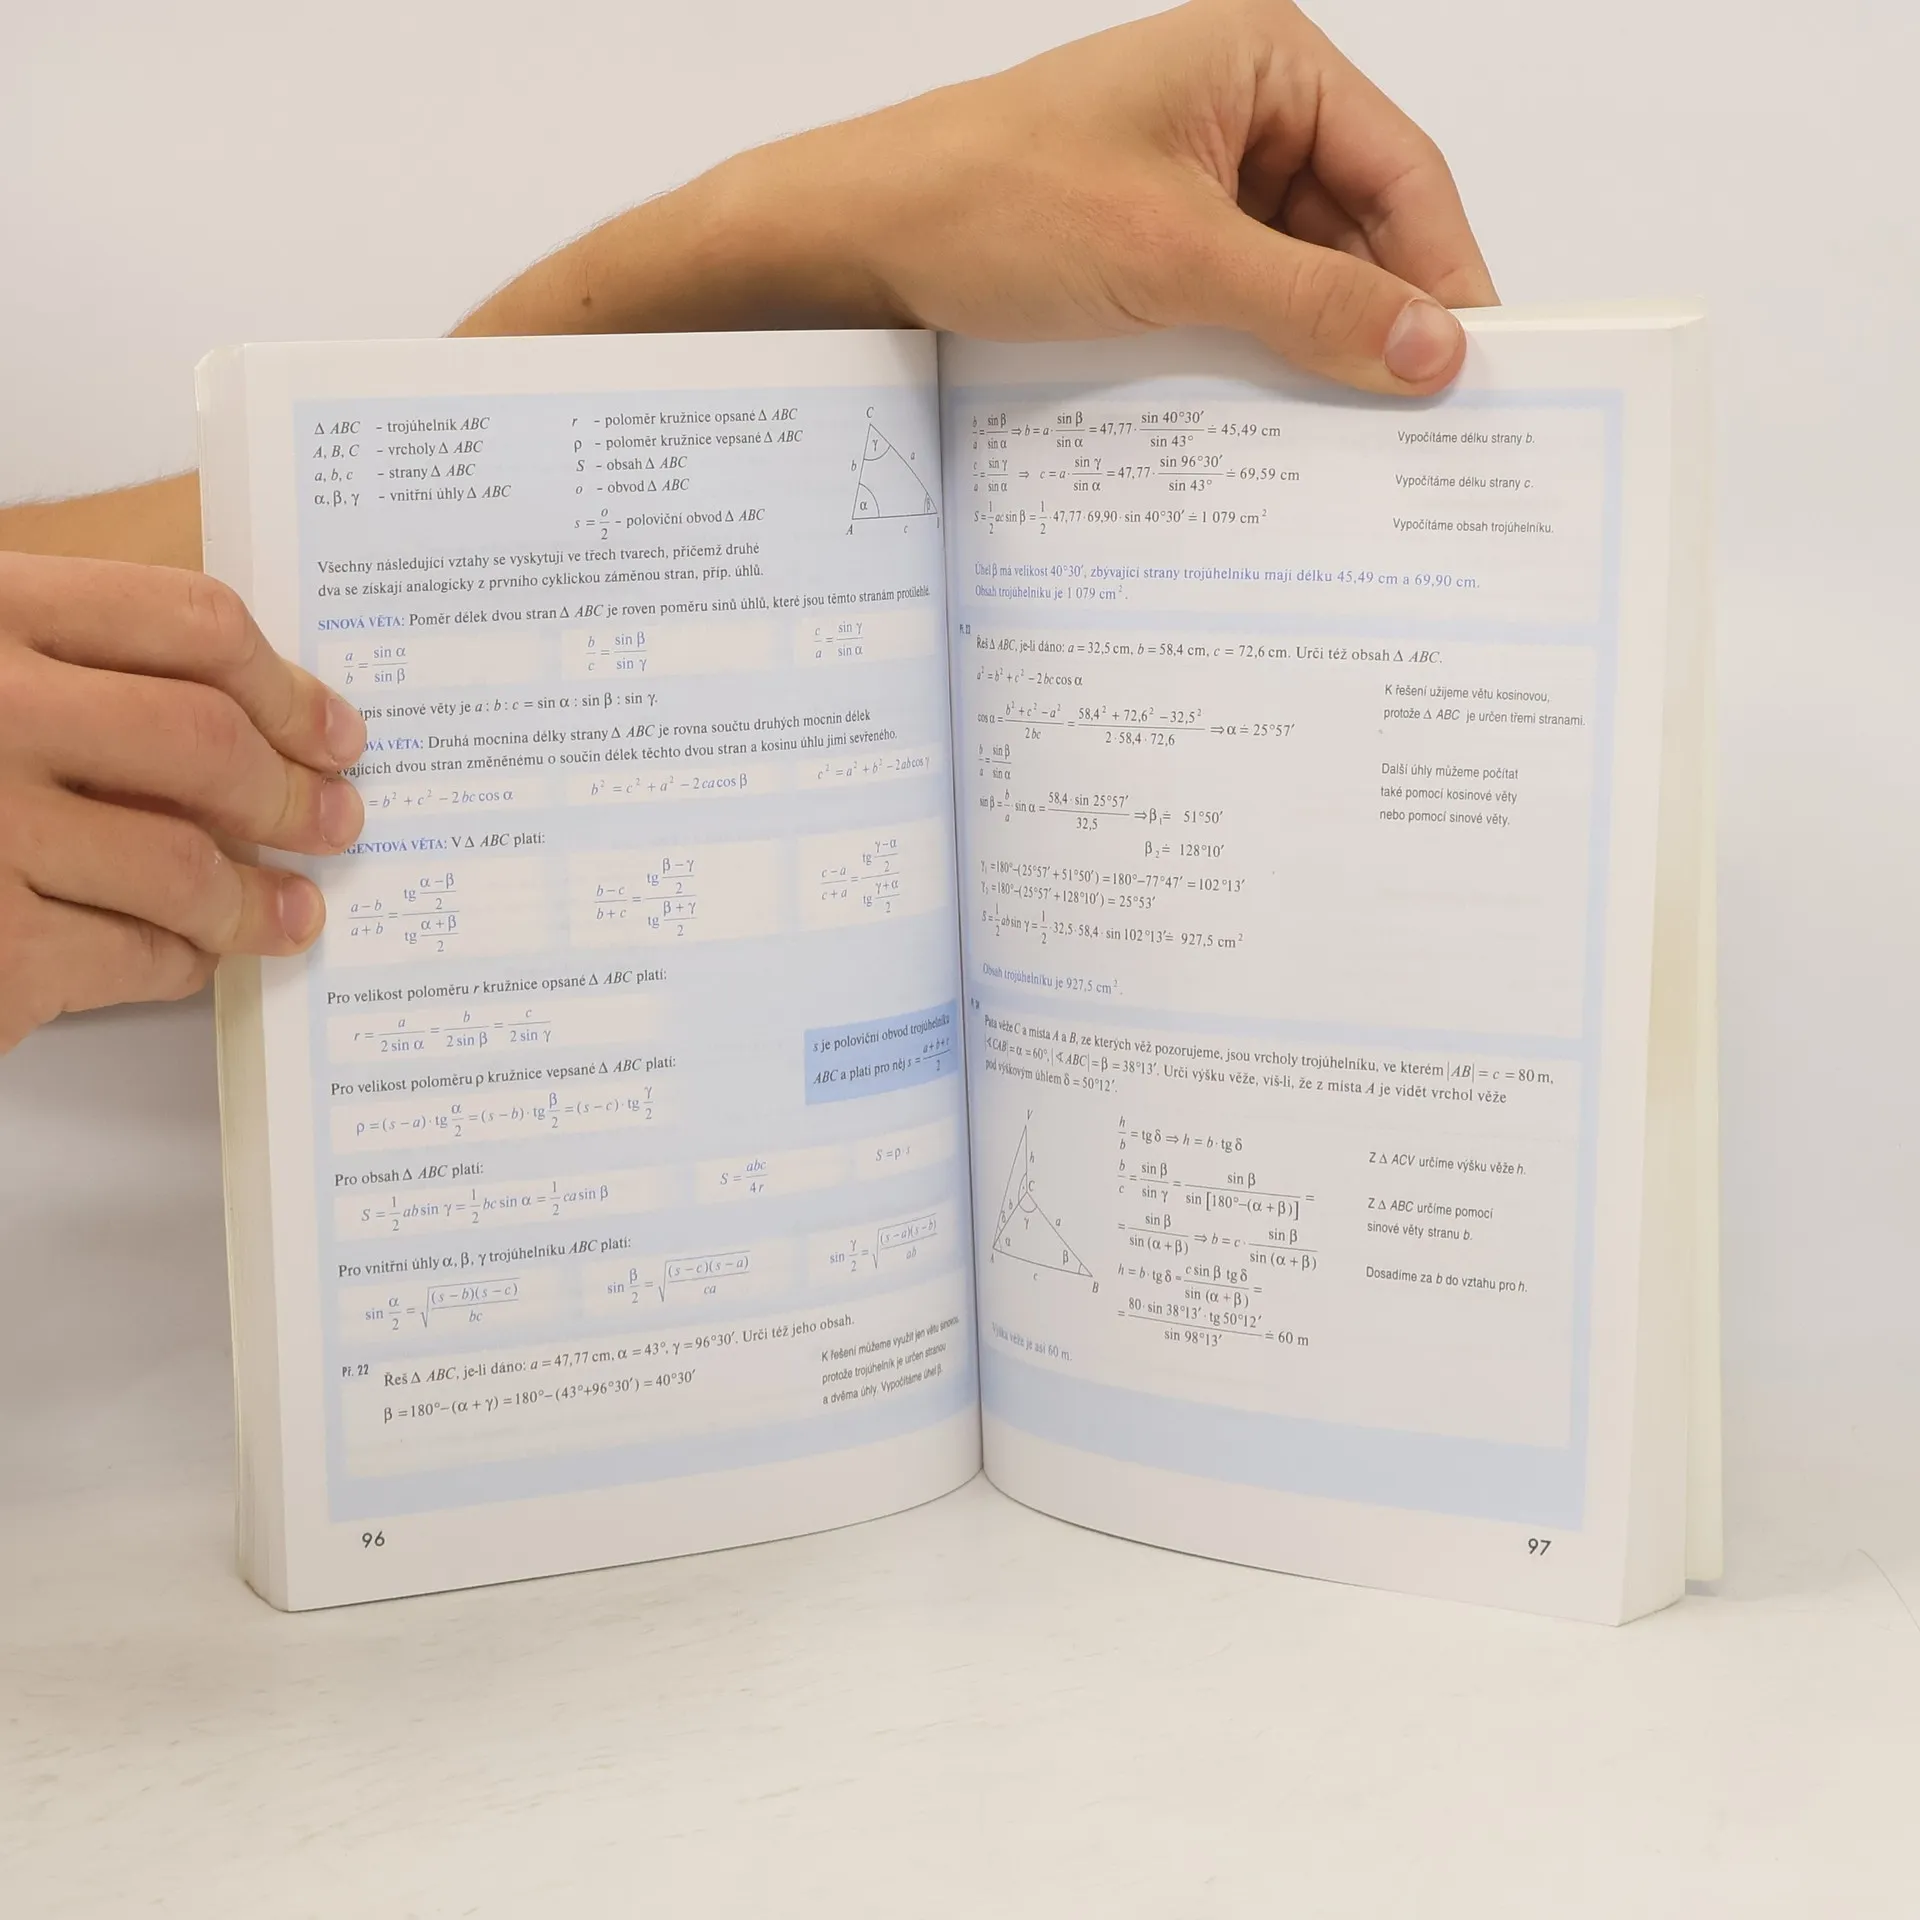 Δ ABC – trojúhelník ABC
A, B, C – vrcholy Δ ABC
a, b, c – strany Δ ABC
α, β, γ – vnitřní úhly Δ ABC
r – poloměr kružnice opsané Δ ABC
ρ – poloměr kružnice vepsané Δ ABC
S – obsah Δ ABC
o – obvod Δ ABC
s = o/2 – poloviční obvod Δ ABC
C
γ
b a
α β
A c
Všechny následující vztahy se vyskytují ve třech tvarech, přičemž druhé
dva se získají analogicky z prvního cyklickou záměnou stran, příp. úhlů.
SINOVÁ VĚTA: Poměr délek dvou stran Δ ABC je roven poměru sinů úhlů, které jsou těmto stranám protilehlé.
a/b = sin α/sin β b/c = sin β/sin γ c/a = sin γ/sin α
pis sinové věty je a : b : c = sin α : sin β : sin γ.
OVÁ VĚTA: Druhá mocnina délky strany Δ ABC je rovna součtu druhých mocnin délek
vajících dvou stran změněnému o součin délek těchto dvou stran a kosinu úhlu jimi sevřeného.
= b² + c² – 2bc cos α b² = c² + a² – 2ca cos β c² = a² + b² – 2ab cos γ
GENTOVÁ VĚTA: V Δ ABC platí:
(a – b)/(a + b) = tg (α – β)/2 / tg (α + β)/2 (b – c)/(b + c) = tg (β – γ)/2 / tg (β + γ)/2 (c – a)/(c + a) = tg (γ – α)/2 / tg (γ + α)/2
Pro velikost poloměru r kružnice opsané Δ ABC platí:
r = a/(2 sin α) = b/(2 sin β) = c/(2 sin γ)
s je poloviční obvod trojúhelníku
ABC a platí pro něj s = (a + b + c)/2
Pro velikost poloměru ρ kružnice vepsané Δ ABC platí:
ρ = (s – a) · tg α/2 = (s – b) · tg β/2 = (s – c) · tg γ/2
Pro obsah Δ ABC platí:
S = 1/2 ab sin γ = 1/2 bc sin α = 1/2 ca sin β S = abc/4r S = ρ · s
Pro vnitřní úhly α, β, γ trojúhelníku ABC platí:
sin α/2 = √((s – b)(s – c)/bc) sin β/2 = √((s – c)(s – a)/ca) sin γ/2 = √((s – a)(s – b)/ab)
Př. 22 Řeš Δ ABC, je-li dáno: a = 47,77 cm, α = 43°, γ = 96°30′. Urči též jeho obsah.
β = 180°–(α + γ) = 180°–(43°+96°30′) = 40°30′
K řešení můžeme využít jen větu sinovou,
protože trojúhelník je určen stranou
a dvěma úhly. Vypočítáme úhel β.
96
b/a = sin β/sin α ⇒ b = a · sin β/sin α = 47,77 · sin 40°30′/sin 43° ≐ 45,49 cm Vypočítáme délku strany b.
c/a = sin γ/sin α ⇒ c = a · sin γ/sin α = 47,77 · sin 96°30′/sin 43° ≐ 69,59 cm Vypočítáme délku strany c.
S = 1/2 ac sin β = 1/2 · 47,77 · 69,90 · sin 40°30′ ≐ 1 079 cm² Vypočítáme obsah trojúhelníku.
Úhel β má velikost 40°30′, zbývající strany trojúhelníku mají délku 45,49 cm a 69,90 cm.
Obsah trojúhelníku je 1 079 cm².
Řeš Δ ABC, je-li dáno: a = 32,5 cm, b = 58,4 cm, c = 72,6 cm. Urči též obsah Δ ABC.
a² = b² + c² – 2bc cos α
K řešení užijeme větu kosinovou,
protože Δ ABC je určen třemi stranami.
cos α = (b² + c² – a²)/2bc = (58,4² + 72,6² – 32,5²)/(2 · 58,4 · 72,6) ⇒ α ≐ 25°57′
b/a = sin β/sin α
Další úhly můžeme počítat
také pomocí kosinové věty
nebo pomocí sinové věty.
sin β = b/a · sin α = 58,4 · sin 25°57′/32,5 ⇒ β₁ ≐ 51°50′
β₂ ≐ 128°10′
γ₁ = 180°–(25°57′ + 51°50′) = 180°–77°47′ = 102°13′
γ₂ = 180°–(25°57′ + 128°10′) = 25°53′
S = 1/2 ab sin γ = 1/2 · 32,5 · 58,4 · sin 102°13′ ≐ 927,5 cm²
Obsah trojúhelníku je 927,5 cm².
Pata věže C a místa A a B, ze kterých věž pozorujeme, jsou vrcholy trojúhelníku, ve kterém |AB| = c = 80 m,
|∢CAB| = α = 60°, |∢ ABC| = β = 38°13′. Urči výšku věže, víš-li, že z místa A je vidět vrchol věže
pod výškovým úhlem δ = 50°12′.
V
h
C
b a
γ
δ
α β
A c B
h/b = tg δ ⇒ h = b · tg δ Z Δ ACV určíme výšku věže h.
b/c = sin β/sin γ = sin β/sin [180°–(α + β)] =
Z Δ ABC určíme pomocí
sinové věty stranu b.
= sin β/sin (α + β) ⇒ b = c · sin β/sin (α + β)
h = b · tg δ = c sin β tg δ/sin (α + β) = Dosadíme za b do vztahu pro h.
= 80 · sin 38°13′ · tg 50°12′/sin 98°13′ ≐ 60 m
Výška věže je asi 60 m.
97